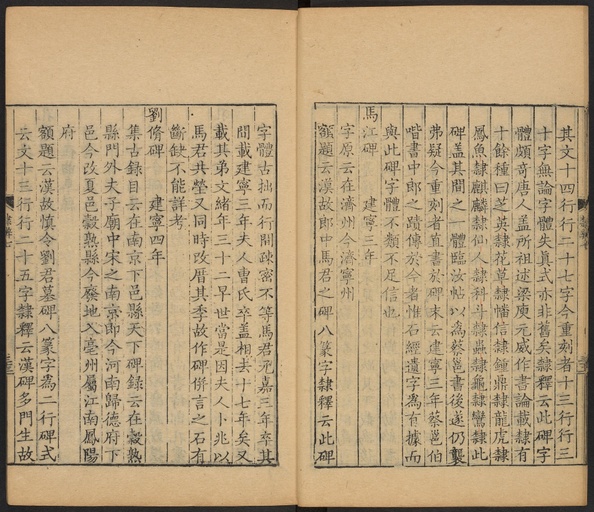 其文十四行行二十七字今重刻者十三行行三
十字無論字體失真式亦非舊矣隸釋云此碑字
體頗奇唐人蓋所祖述梁庾元威作書論載隸有
十餘種曰芝英隸花草隸幡信隸鍾鼎隸龍虎隸
鳳魚隸麒麟隸仙人隸科斗隸蟲隸龜隸鸞隸此
碑蓋其間之一體臨汝帖以為蔡邕書後遂仍襲
弗疑今重刻者直書於碑末云建寧三年蔡邕伯
喈書中郎之蹟傳於今者惟石經遺字為有據而
與此碑字體不類不足信也
馬江碑 建寧三年
字原云在濟州今濟寧州
額題云漢故郎中馬君之碑八篆字隸釋云此碑
字體古拙而行間疎密不等馬君元嘉三年卒其
間載建寧三年夫人曹氏卒蓋相去十七年矣又
載其弟文緒年三十二早世當是因夫人卜兆以
馬君共塋又同時改厝其季故作碑併言之石有
斷缺不能詳考
劉脩碑 建寧四年
集古錄目云在南京下邑縣天下碑錄云在穀熟
縣門外夫子廟中宋之南京即今河南歸德府下
邑今改夏邑穀熟縣今廢地入亳州屬江南鳳陽
府
額題云漢故慎令劉君墓碑八篆字為二行碑式
云文十三行行二十五字隸釋云漢碑多門生故